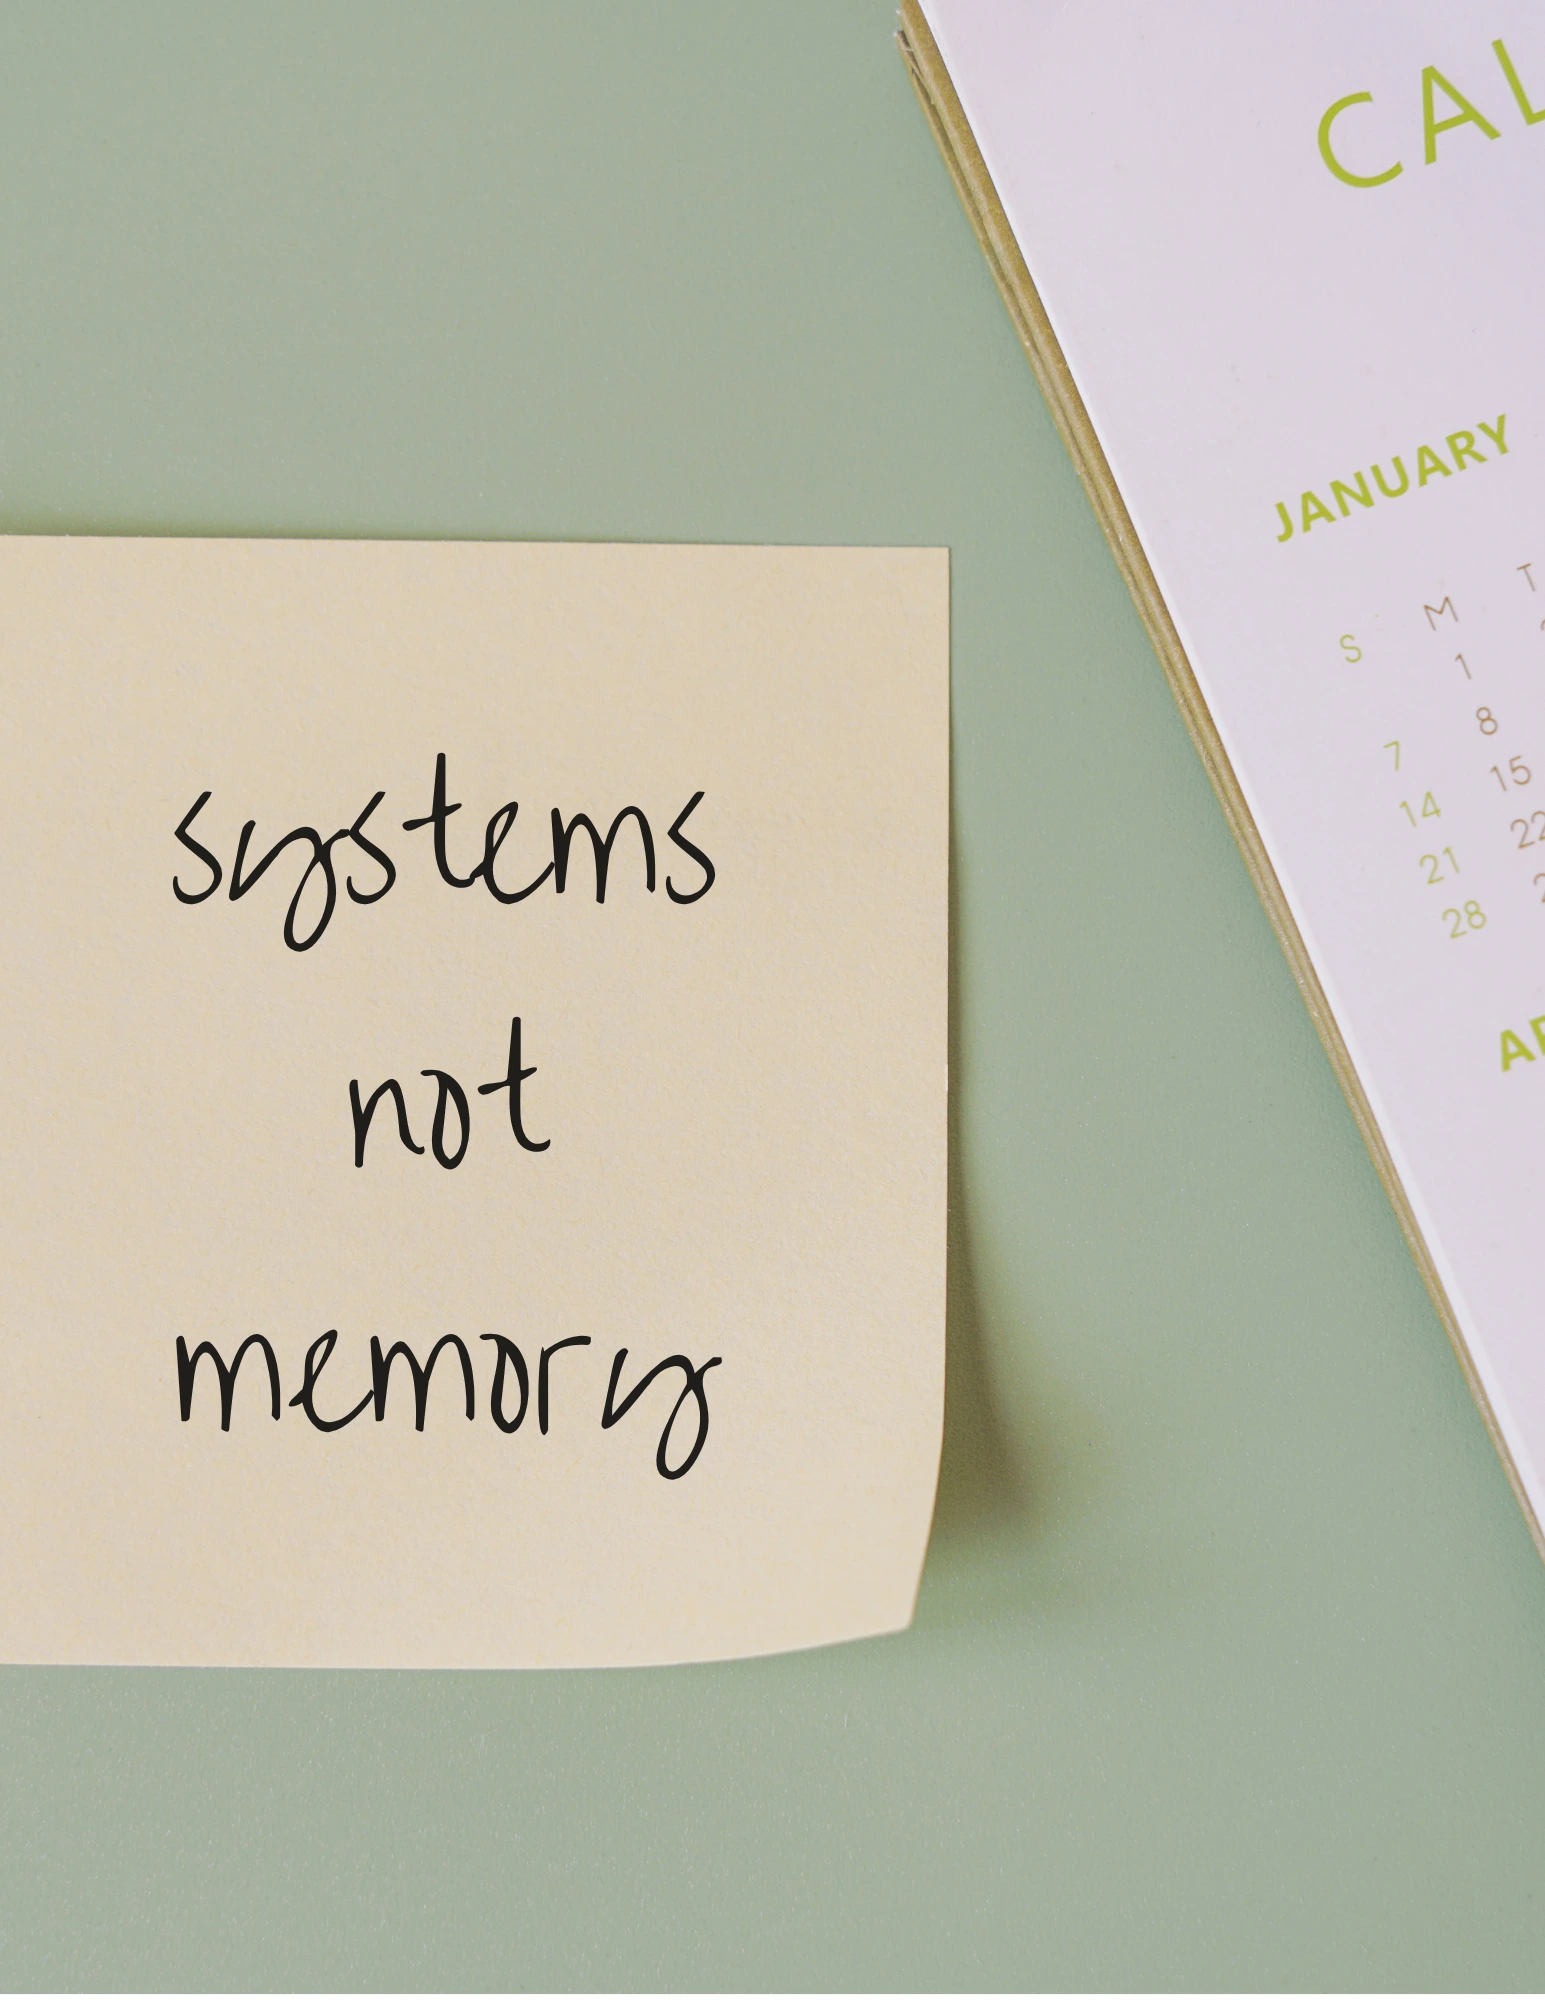 systems
not
memory
CAL
JANUARY
S M T
1
7 8
14 15
21 22
28